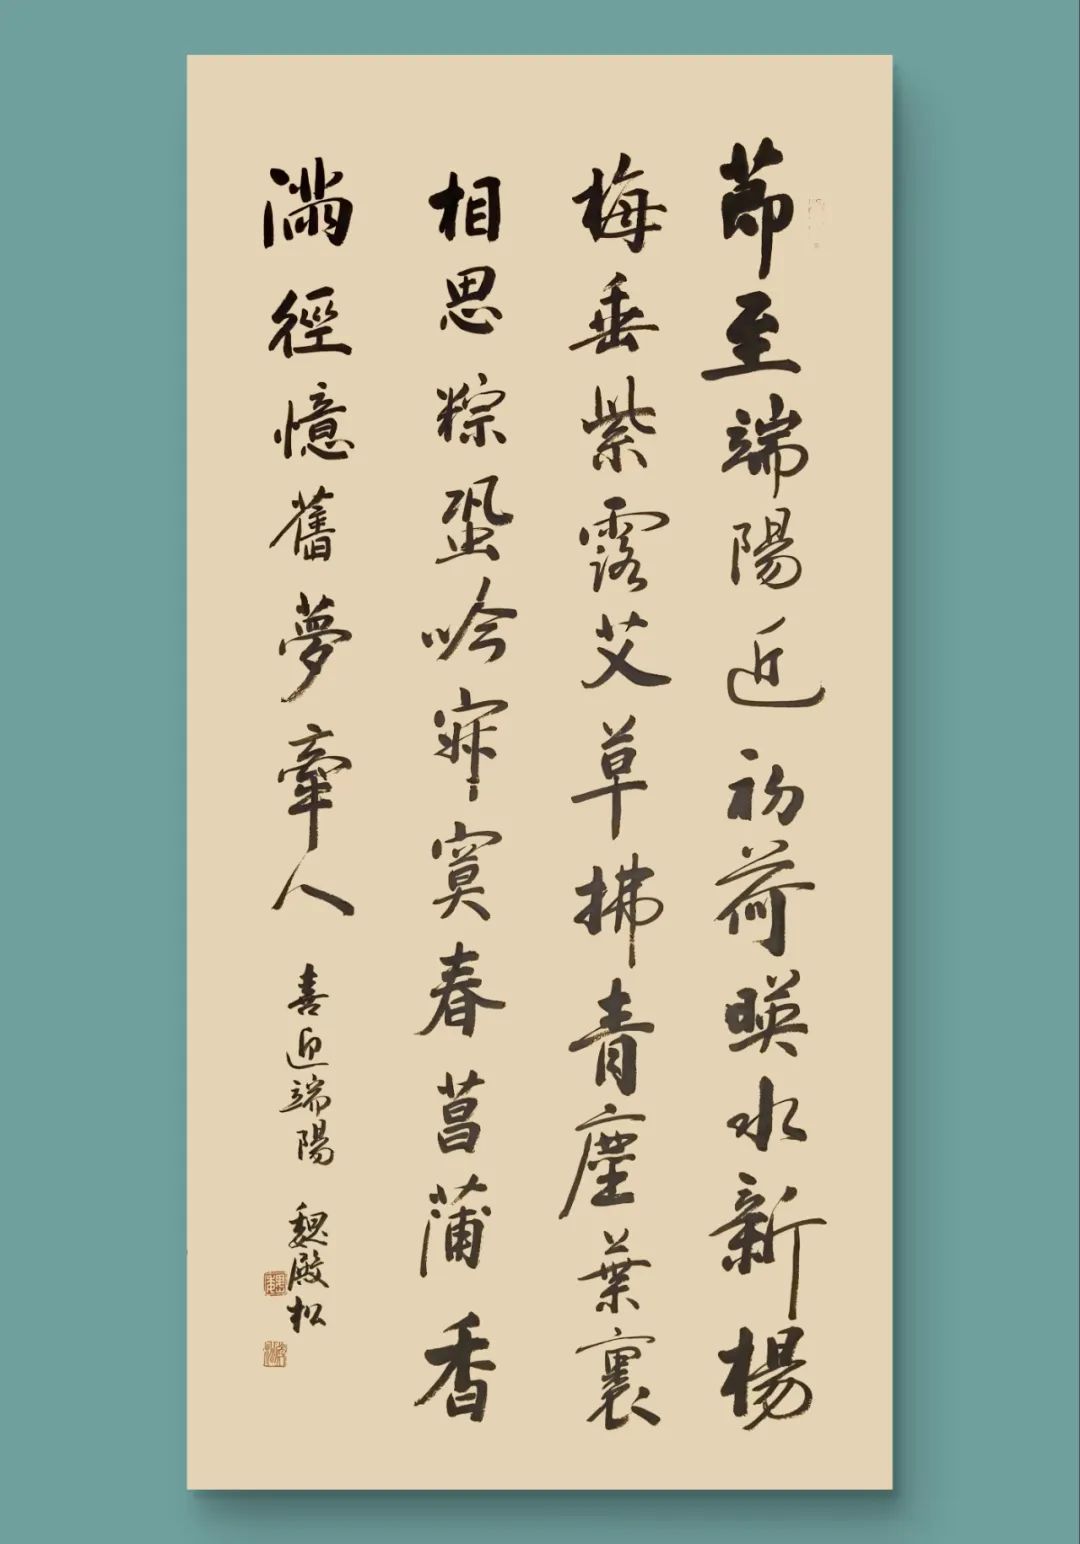 節至端陽近初荷暎水新楊
梅垂紫露艾草拂青塵葉裹
相思粽蛩吟寂寞春菖蒲香
滿徑憶舊夢牽人
喜迎端陽 魏殿松